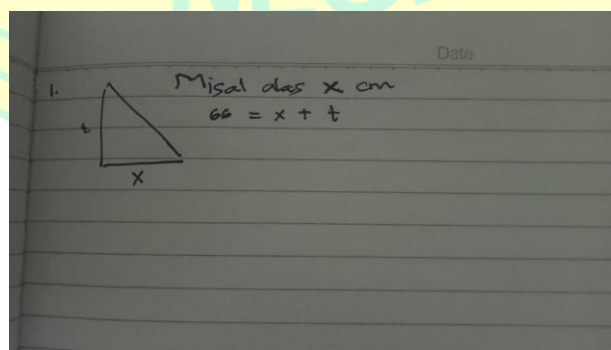 Date
1. Misal alas x cm
66 = x + t
t
x